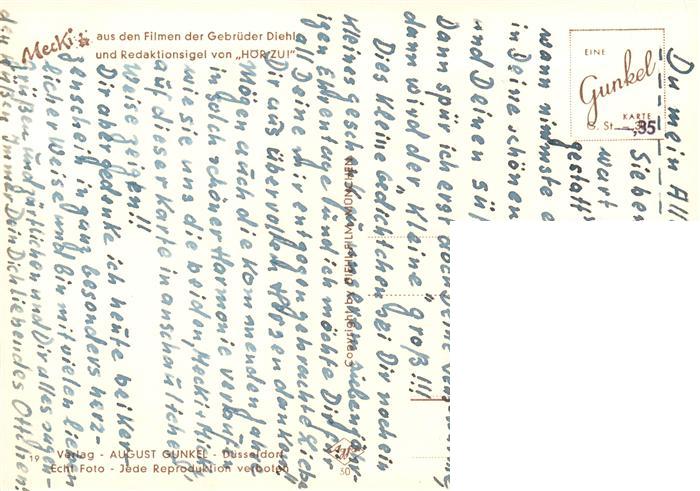 Mecki
aus den Filmen der Gebrüder Diehl
und Redaktionsigel von „HÖR ZU!"
EINE
Gunkel
KARTE
S. St —,35
Du mein All
Sieben
wert
gestatt
wann nimmste
in Deine schönen
und Deinen sü
Dann spür ich erst doch
dann wird der Kleine „groß"!!!
Dies kleine Gedichtchen bei Dir noch ein
kleines geschenk zu unserem siebenjäh-
igen Ehrentage sund ich möchte Dir für
all Deine mir entgegengebrachte Liebe
Dir aus übervollem Herzen danken.
Mögen auch die kommenden Jahre
in solch schöner Harmonie verlaufen
wie sie uns die beiden, Mecki + Micki
auf dieser Karte in anschaulicher
Weise zeigen!!
Dir aber gedenke ich heute bei Ker-
zenschein in ganz besonders herz-
licher Weise und bin mit vielen lieben
Grüßen und Dir alles
Immer Dein Dich liebendes Ottilchen!
Copyright by DIEHL-FILM, MÜNCHEN
19
Verlag - AUGUST GUNKEL - Düsseldorf
Echt Foto - Jede Reproduktion verboten
Agfa
30